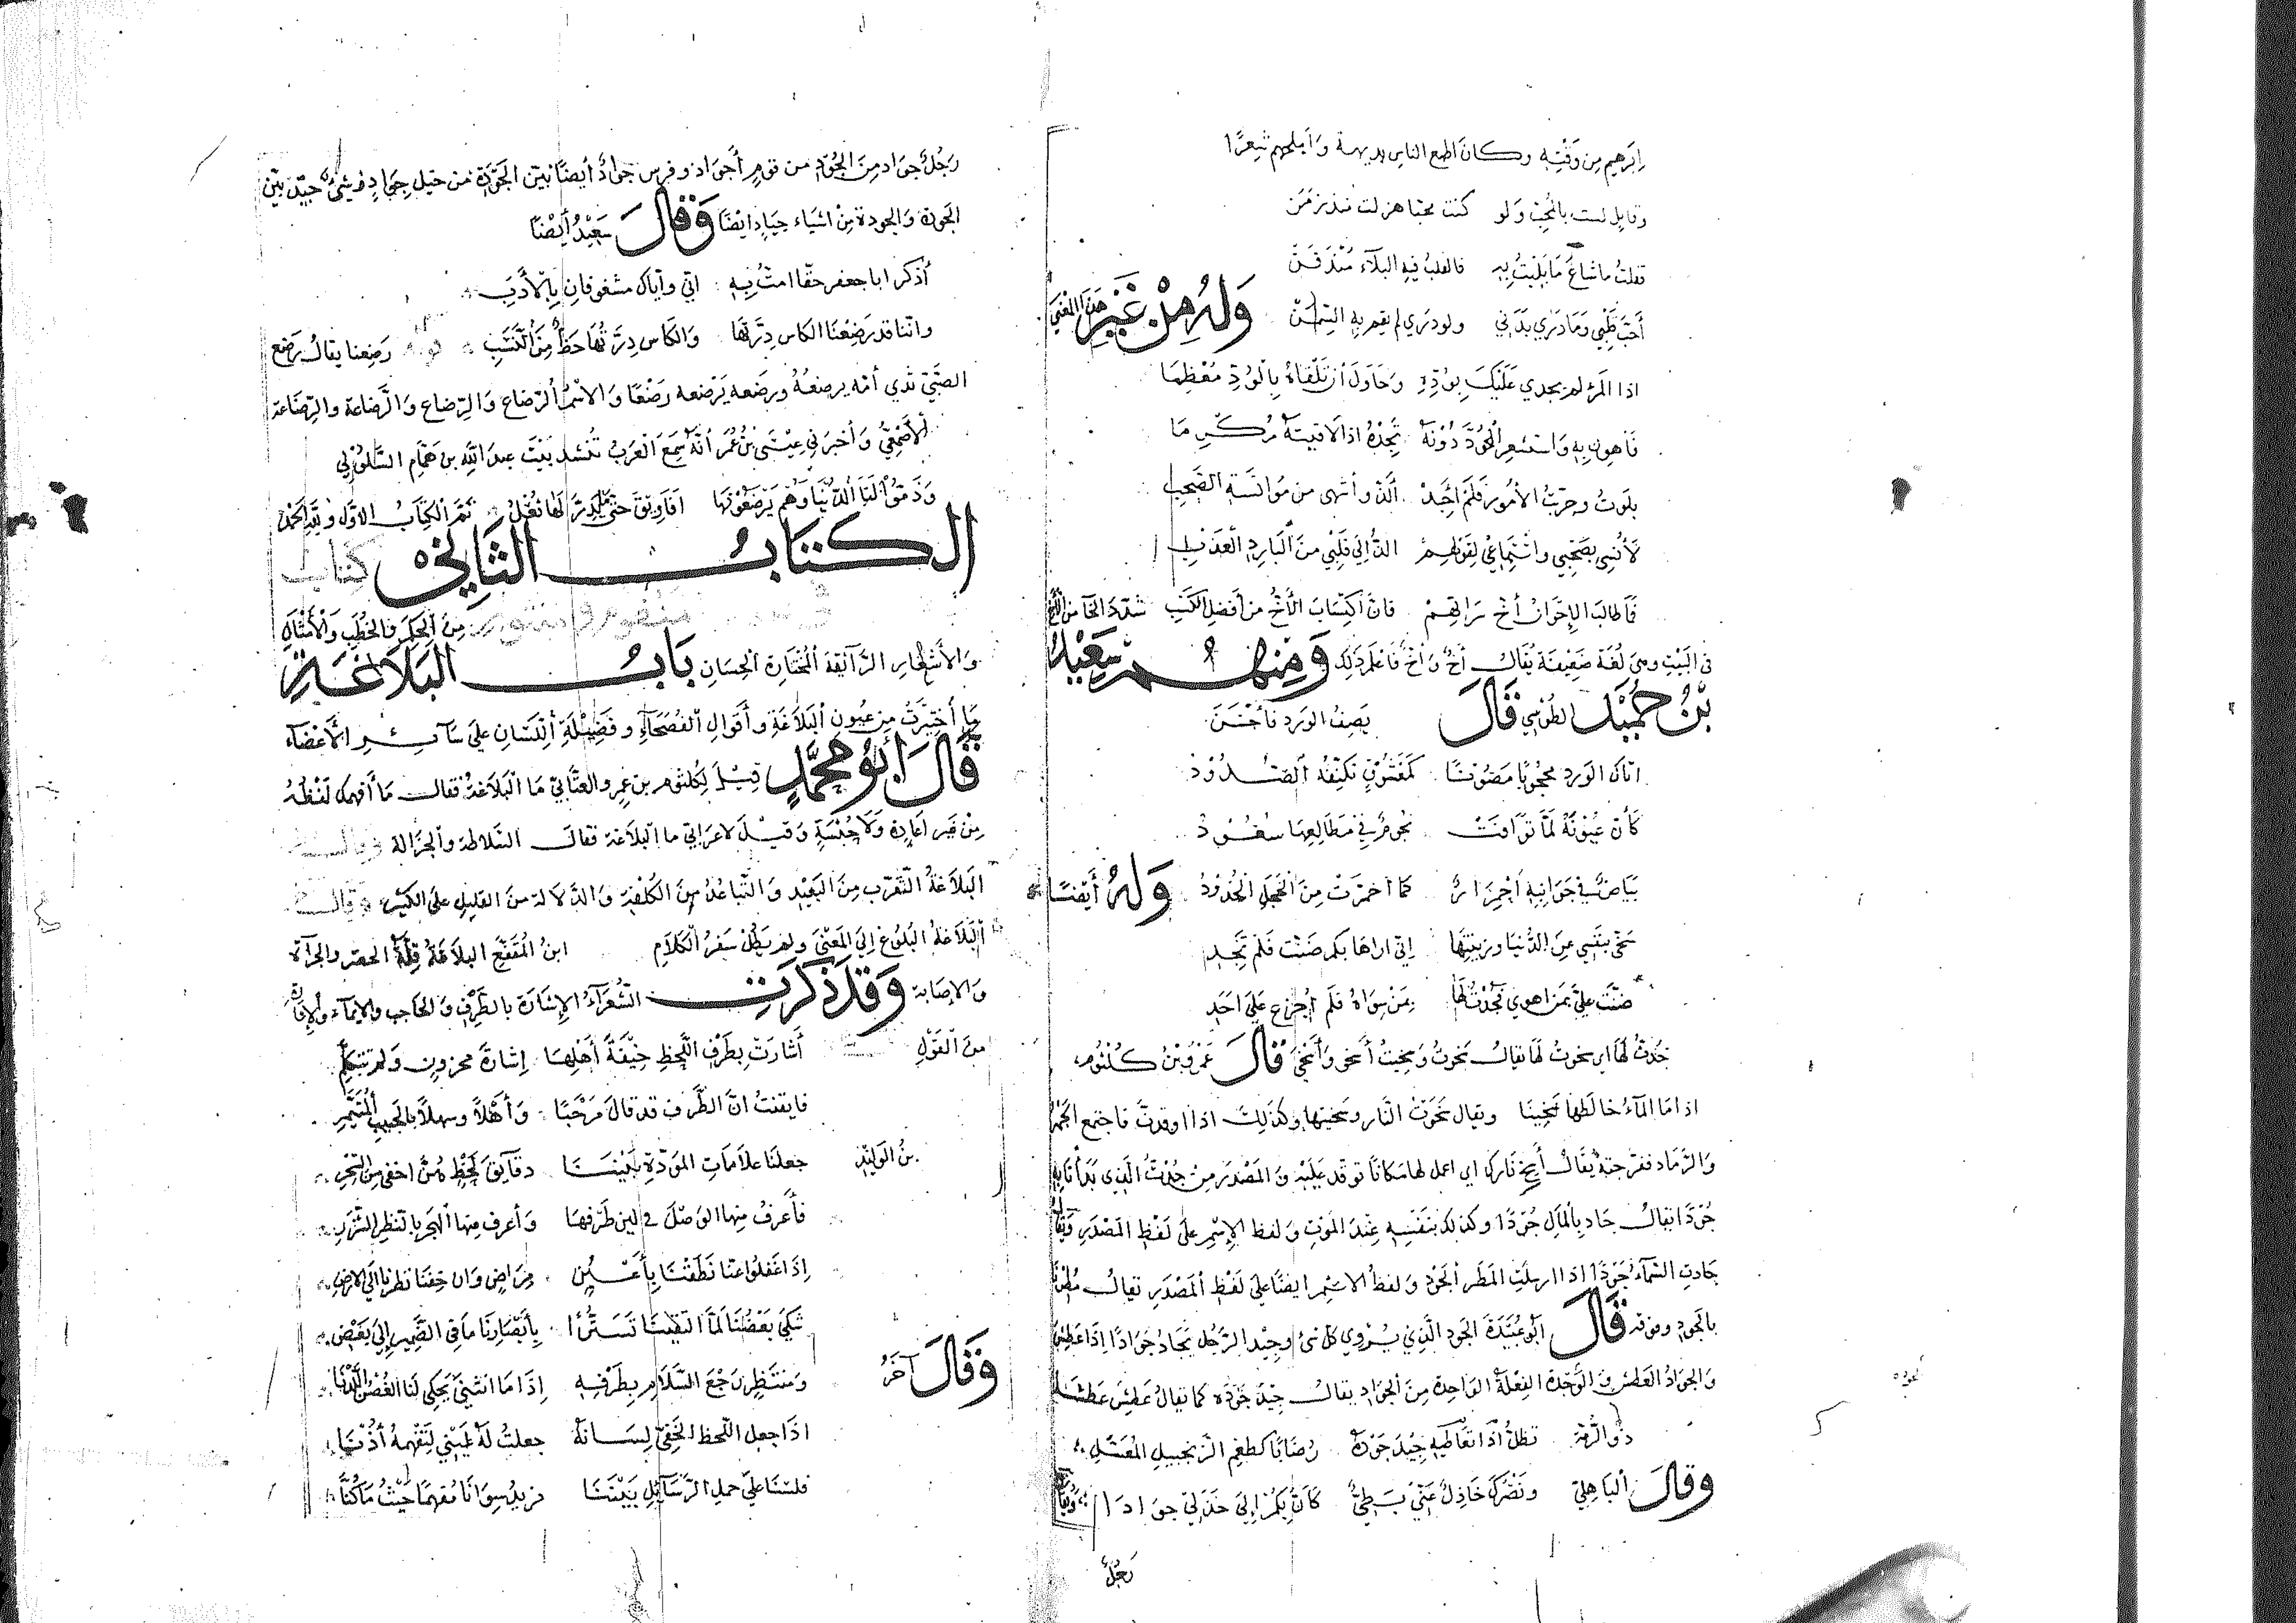 إبرهيم من وقته وكان اطبع الناس بديهة وأملحهم شعرًا
وقايل لست بالمحب ولو كنت محبا هزلت منذ زمن
فقلت ما شاع ما بليت به فالقلب فيه البلاء مندفن
أحب قلبي وما درى بدني ولو درى لم يقم به السمن وله من غير هذا المعنى
اذا المرء لم يجدي عليك بوده وحاول أن تلقاه بالود معظما
فأهون به واستشعر دونه تجده اذا لاقيته مكرما
بلوت وجربت الأمور فلم اجد ألذ وأشهى من مؤانسة الصحب
لأنسي بصحبي واستماعي لقولهم الذ الى قلبي من البارد العذب
فيا طالب الإخوان أخ تراقهم فان اكتساب الأخ من أفضل الكسب شدد الخا من الأخ
في البيت وهي لغة ضعيفة يقال أخ وأخ فاعلم ذلك ومنهم سعيد
بن حميد الطوسي قال يصف الورد فأحسن
اتاك الورد محجوبا مصونا كمعشوق تكنفه الصدود
كأن عيونه لما توافت نجوم في مطالعها سعود
بياض في جوانبه احمرار كما احمرت من الخجل الخدود وله أيضا
سخى بنفسي عن الدنيا وزينتها إني اراها بكم ضنت فلم تجد
ضنت علي بمن اهوى فجدت لها بمن سواه فلم أجزع على احد
جدت لها اي سخوت لها يقال سخوت وسخيت أسخو وأسخى قال عمرو بن كلثوم
اذا ما الماء خالطها سخينا ويقال سخوت النار وسخيتها وكذلك اذا اوقدت فاجتمع الجمر
والرماد ففرجته يقال أسخ نارك اي اعمل لها مكانا توقد عليه والمصدر من جدت الذي بدأنا به
جودا يقال جاد بالمال جودا وكذلك بنفسه عند الموت ولفظ الإسم على لفظ المصدر ويقال
جادت السماء جودا اذا ارسلت المطر الجود ولفظ الاسم ايضا على لفظ المصدر تقال مطرنا
بالجود وفوقه قال ابو عبيدة الجود الذي يروي كل شئ وجيد الرجل يجاد جوادا إذا عطش
والجواد العطش والجودة الفعلة الواحدة من الجواد يقال جيد جودة كما تقال عطش عطشة
ذو الرمة تظل اذا تعاطيه جيد جودة رضابا كطعم الزنجبيل المعسل
وقال الباهلي ونصرك خاذل عني بطئ كأن بكم إلى خذلي جوادا ويقال
رجل
رجل جواد من الجود من قوم أجواد وفرس جواد أيضا بين الجودة من خيل جياد وشئ جيد بين
الجودة والجودة من اشياء جياد ايضا وقال سعيد أيضا
أذكر ابا جعفر حقا امت به اني واياك مشغوفان بالأدب
واننا قد رضعنا الكاس درتها والكاس درتها حظ من النسب قوله رضعنا يقال رضع
الصبي ثدي أمه يرضعه ورضعه يرضعه رضعا والاسم الرضاع والرضاع والرضاعة والرضاعة
الأصمعي وأخبرني عيسى بن عمر أنه سمع العرب تنشد بيت عبد الله بن همام السلولي
وذموا لنا الدنيا وهم يرضعونها افاويق حتى ما يدر لها ثعل تم الكتاب الاول ولله الحمد
الكتاب الثاني كتاب
من الحكم والخطب والأمثال
والأشعار الرايقة المختارة الحسان باب البلاغة
ما أختيرت من عيون البلاغة وأقوال الفصحاء وفضيلة اللسان على سائر الأعضاء
قال أبو محمد قيل لكلثوم بن عمرو العتابي ما البلاغة فقال ما أفهمك لفظه
من غير اعادة ولا حبسة وقيل لاعرابي ما البلاغة فقال السلاطة والجزالة وقال
البلاغة التقرب من البعيد والتباعد من الكلفة والدلالة من القليل على الكثير وقال
البلاغة البلوغ إلى المعنى ولم يطل سفر الكلام ابن المقفع البلاغة قلة الحصر والجراة
والإصابة وقد ذكرت الشعراء الإشارة بالطرف والحاجب والايماء والإفادة
من القول أشارت بطرف اللحظ خيفة أهلها إشارة محزون ولم تتكلم
فايقنت ان الطرف قد قال مرحبا وأهلا وسهلا بالحبيب المتيم
بن الوليد جعلنا علامات المودة بيننا دقايق لحظ هن اخفى من السحر
فأعرف منها الوصل في لين طرفها وأعرف منها الهجر بالنظر الشزر
إذا غفلوا عنا نطقنا بأعين مراض وان خفنا نظرنا إلى الارض
شكى بعضنا لما التقينا تسترا بأبصارنا ما في الضمير إلى بعض
وقال آخر ومنتظر رجع السلام بطرفه إذا ما انثنى يحكي لنا الغصن اللدنا
اذا جعل اللحظ الخفي لسانه جعلت له عيني لتفهمه أذنا
فلسنا على حمل الرسائل بيننا نريد سوانا مفهما حيث ما كنا